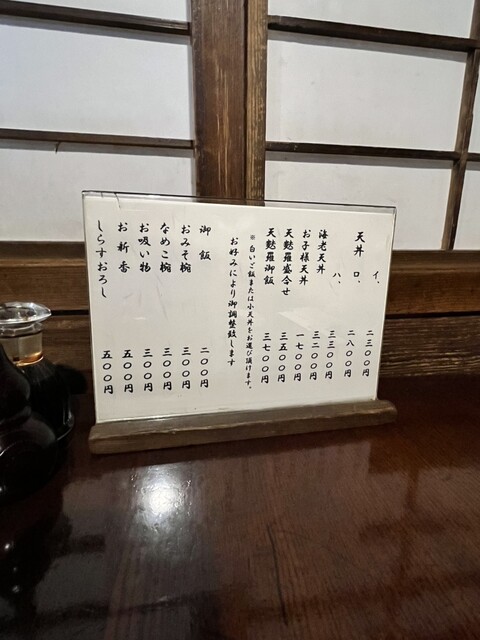 イ、 二三〇〇円
天丼 ロ、 二八〇〇円
ハ、 三三〇〇円
海老天丼 三二〇〇円
お子様天丼 一七〇〇円
天麩羅盛合せ 三五〇〇円
天麩羅御飯 三七〇〇円
※白いご飯または小天丼をお選び頂けます。
お好みにより御調整致します
御飯 二〇〇円
おみそ椀 三〇〇円
なめこ椀 三〇〇円
お吸い物 三〇〇円
お新香 五〇〇円
しらすおろし 五〇〇円